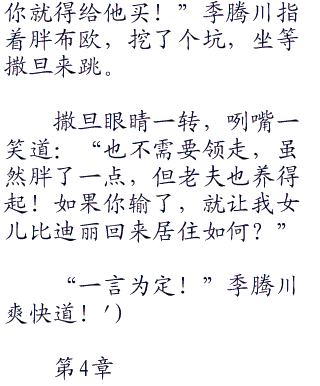 你就得给他买！”季腾川指
着胖布欧，挖了个坑，坐等
撒旦来跳。
撒旦眼睛一转，咧嘴一
笑道：“也不需要领走，虽
然胖了一点，但老夫也养得
起！如果你输了，就让我女
儿比迪丽回来居住如何？”
“一言为定！”季腾川
爽快道！')
第4章